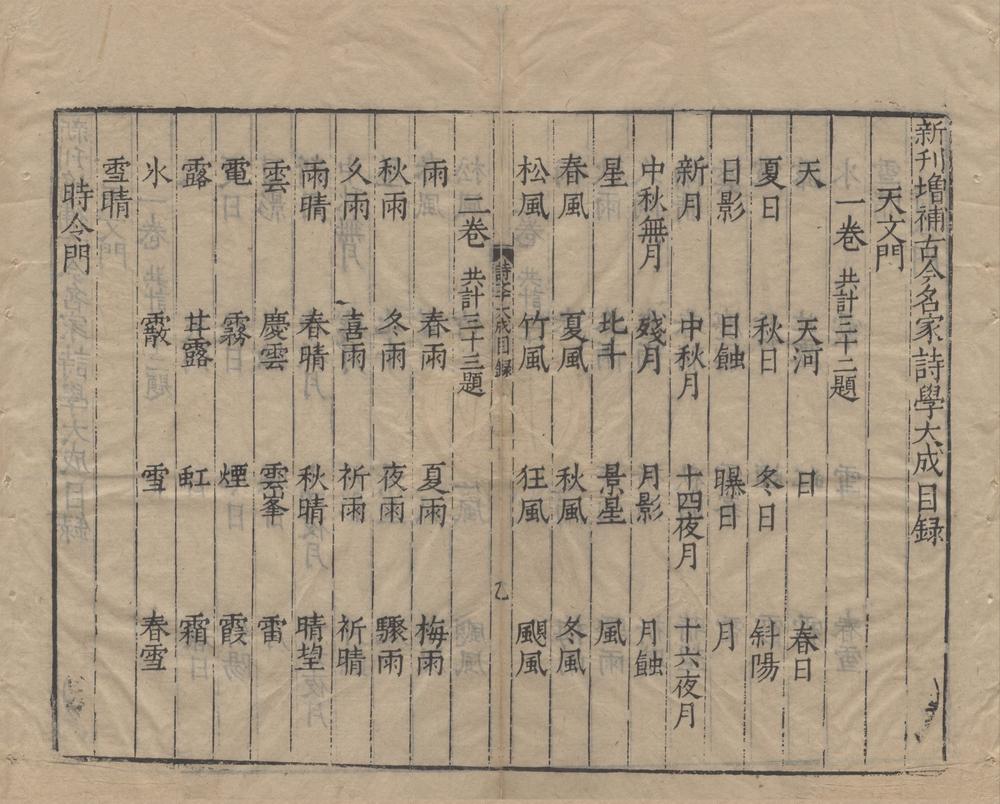 新刊增補古今名家詩學大成目録
天文門
一卷 共計三十二題
天 天河 日 春日
夏日 秋日 冬日 斜陽
日影 日蝕 曝日 月
新月 中秋月 十四夜月 十六夜月
中秋無月 殘月 月影 月蝕
星 北斗 景星 風
春風 夏風 秋風 冬風
松風 竹風 狂風 颶風
詩學大成目録 乙
二卷 共計三十三題
雨 春雨 夏雨 梅雨
秋雨 冬雨 夜雨 驟雨
久雨 喜雨 祈雨 祈晴
雨晴 春晴 秋晴 晴望
雲 慶雲 雲峯 雷
電 霧 煙 霞
露 甘露 虹 霜
氷 霰 雪 春雪
雪晴
時令門